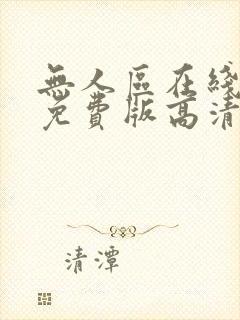 無人區在綫
免費版高清
清潭